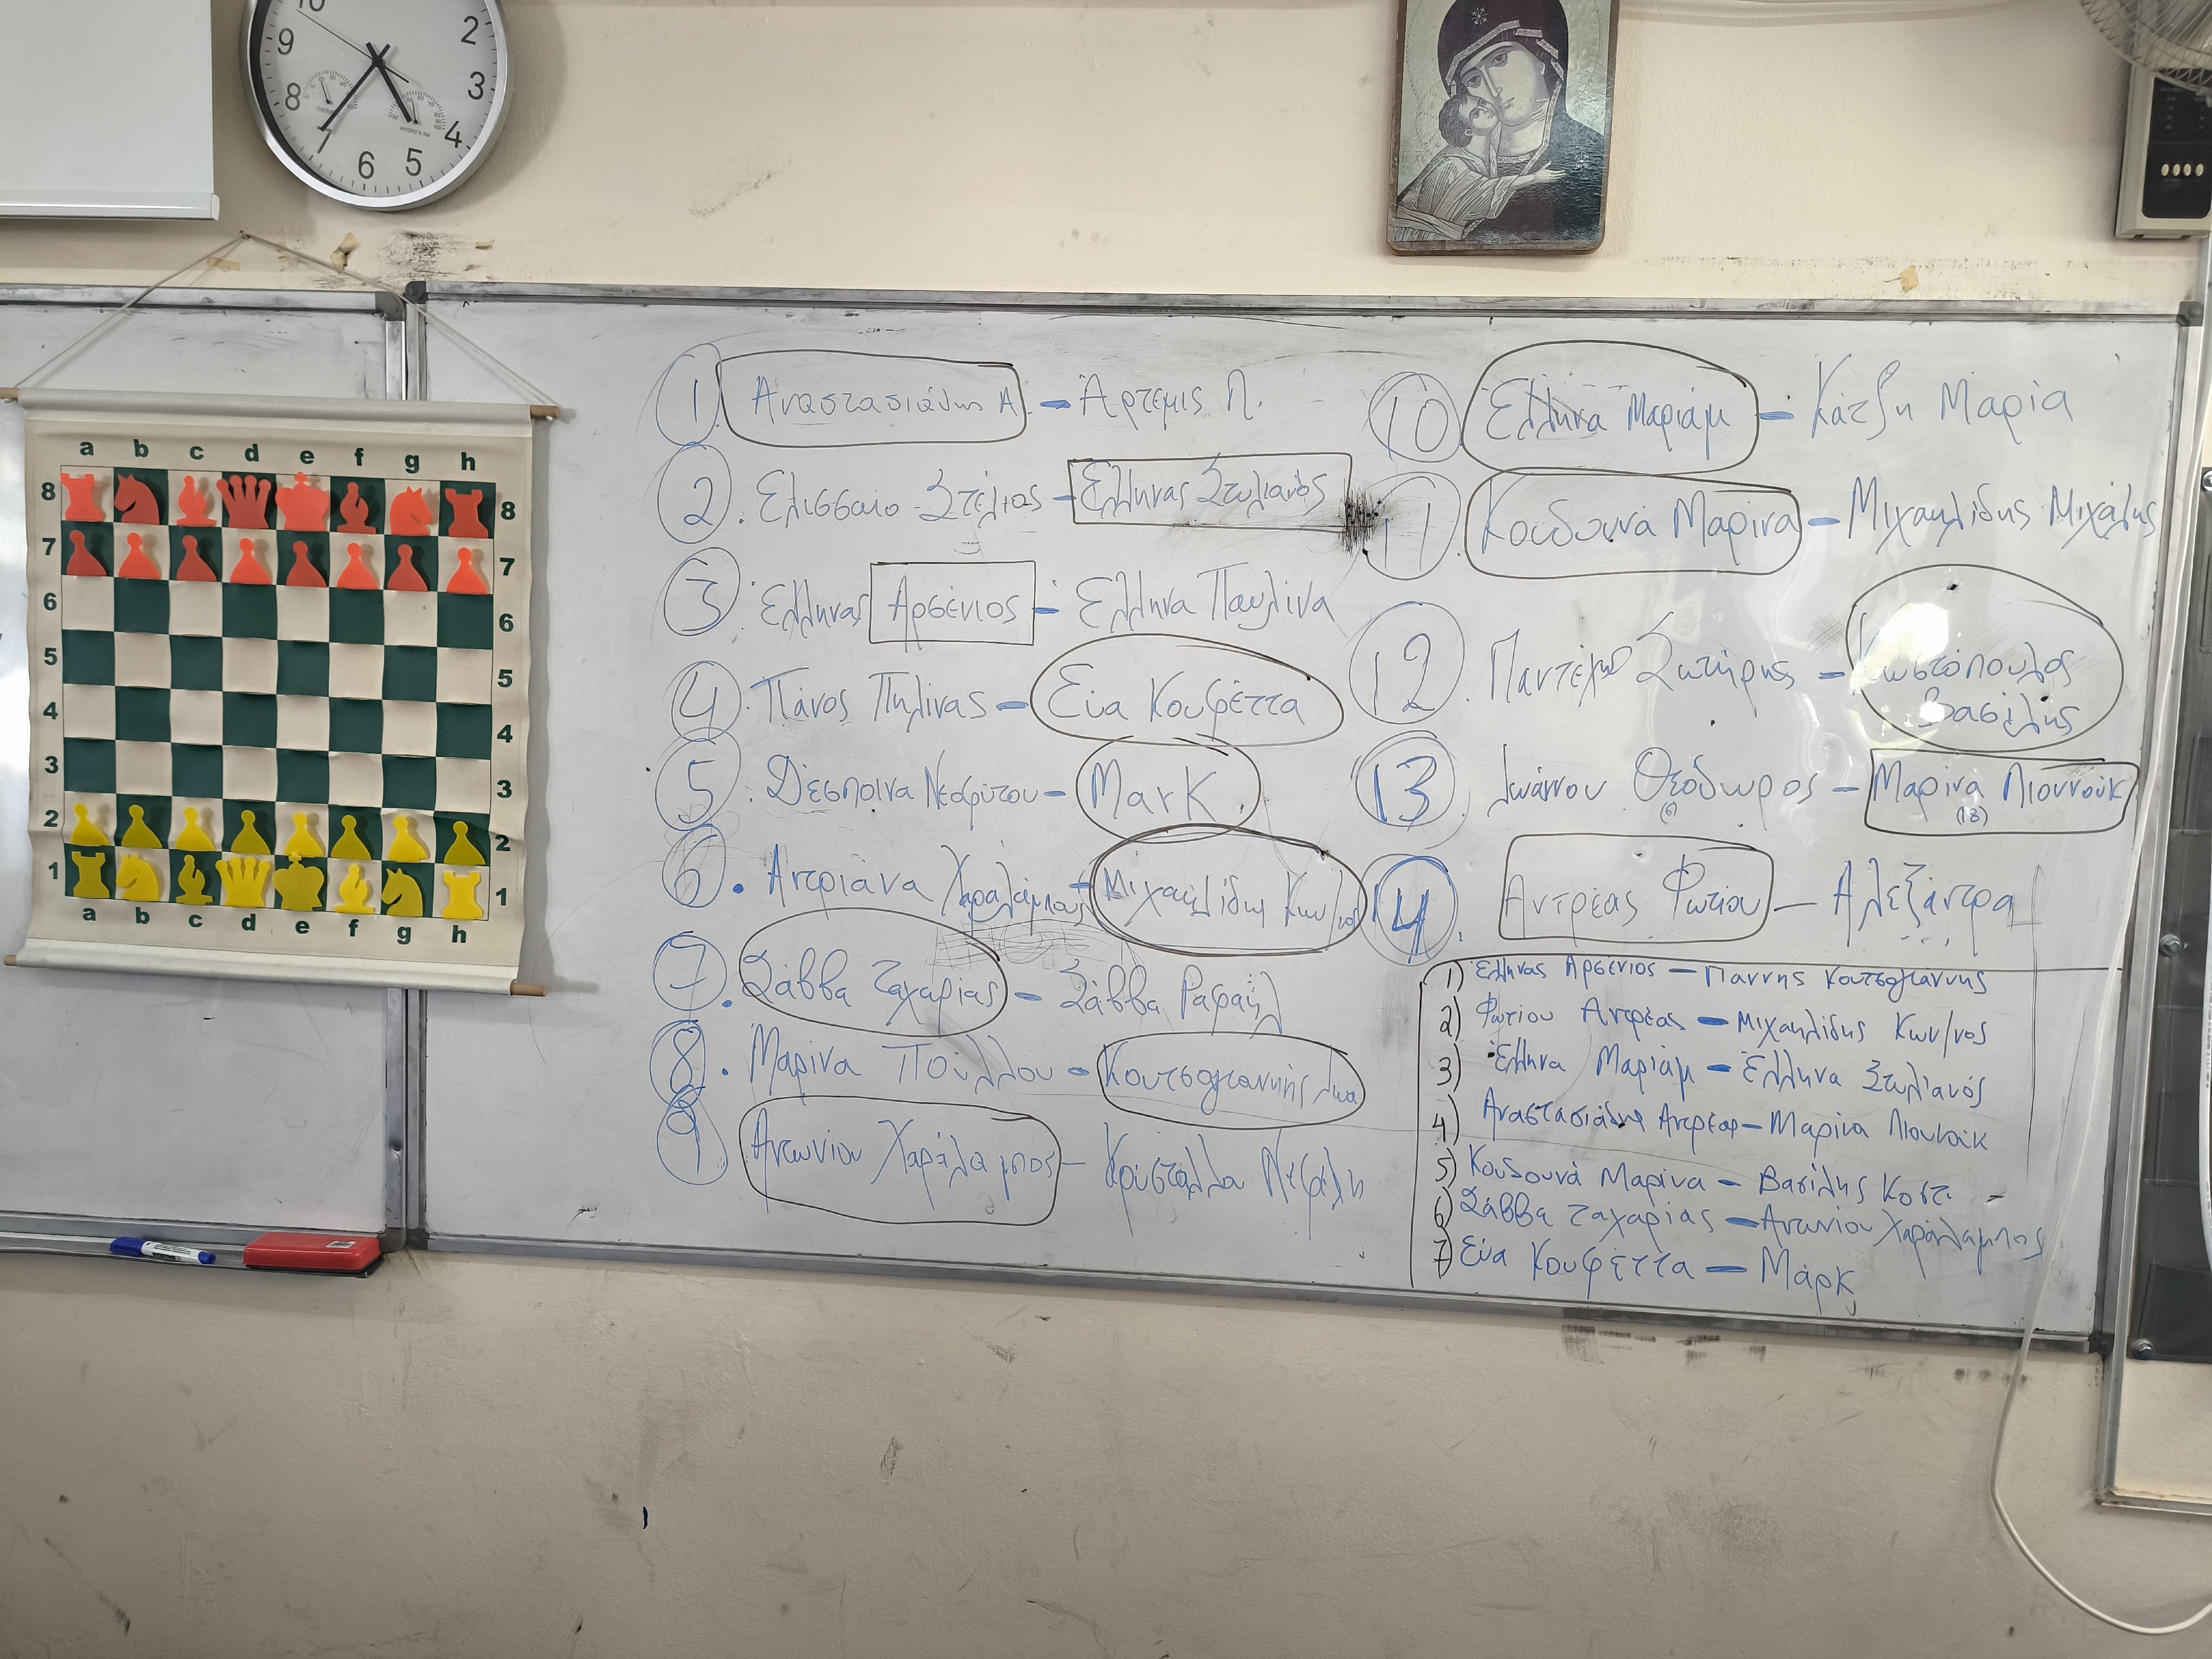 10
2
9
3
8
4
6
5
a b c d e f g h
8 8
7 7
6 6
5 5
4 4
3 3
2 2
1 1
a b c d e f g h
1. Αναστασιάδης Α. - Άρτεμις Π.
2. Ελισσαίο Στέλιος - Έλληνας Στυλιανός
3. Έλληνας Αρσένιος - Έλληνα Παυλίνα
4. Πάνος Πηλίνας - Εύα Κουφέττα
5. Δέσποινα Νεοφύτου - Mark.
6. Αντριάνα Χαραλάμπους - Μιχαηλίδης Κων/νος
7. Σάββα Ζαχαρίας - Σάββα Ραφαήλ
8. Μαρίνα Πούλλου - Κουτσογιαννης
9. Αντωνίου Χαράλαμπος - Κρυστάλλου Νεφέλη
10 Έλληνα Μαριάμ - Κάτζη Μαρία
11. Κουδουνά Μαρίνα - Μιχαηλίδης Μιχάλης
12. Σωτήρης - Κωστόπουλος
Βασίλης
13. Ιωάννου Θεόδωρος - Μαρίνα Λιουνούκ
(6) (18)
14. Αντρέας Φωτίου - Αλεξάντρα
1) Έλληνας Αρσένιος - Γιαννης Κουτσογιαννης
2) Φωτίου Αντρέας - Μιχαηλίδης Κων/νος
3) Έλληνα Μαριάμ - Έλληνα Στυλιανός
4) Αναστασιάδης Αντρέας - Μαρίνα Λιουνούκ
5) Κουδουνά Μαρίνα - Βασίλης Κοστ. -
6) Σάββα Ζαχαρίας - Αντωνίου Χαράλαμπος
7) Εύα Κουφέττα - Μάρκ